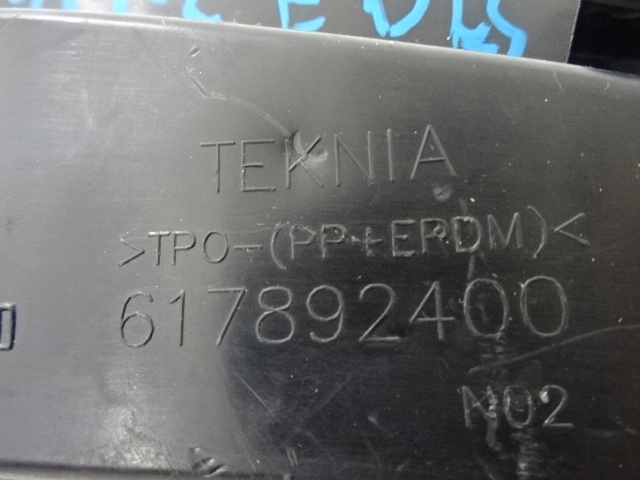 TEKNIA
>TPO-(PP+EPDM)<
617892400
N02